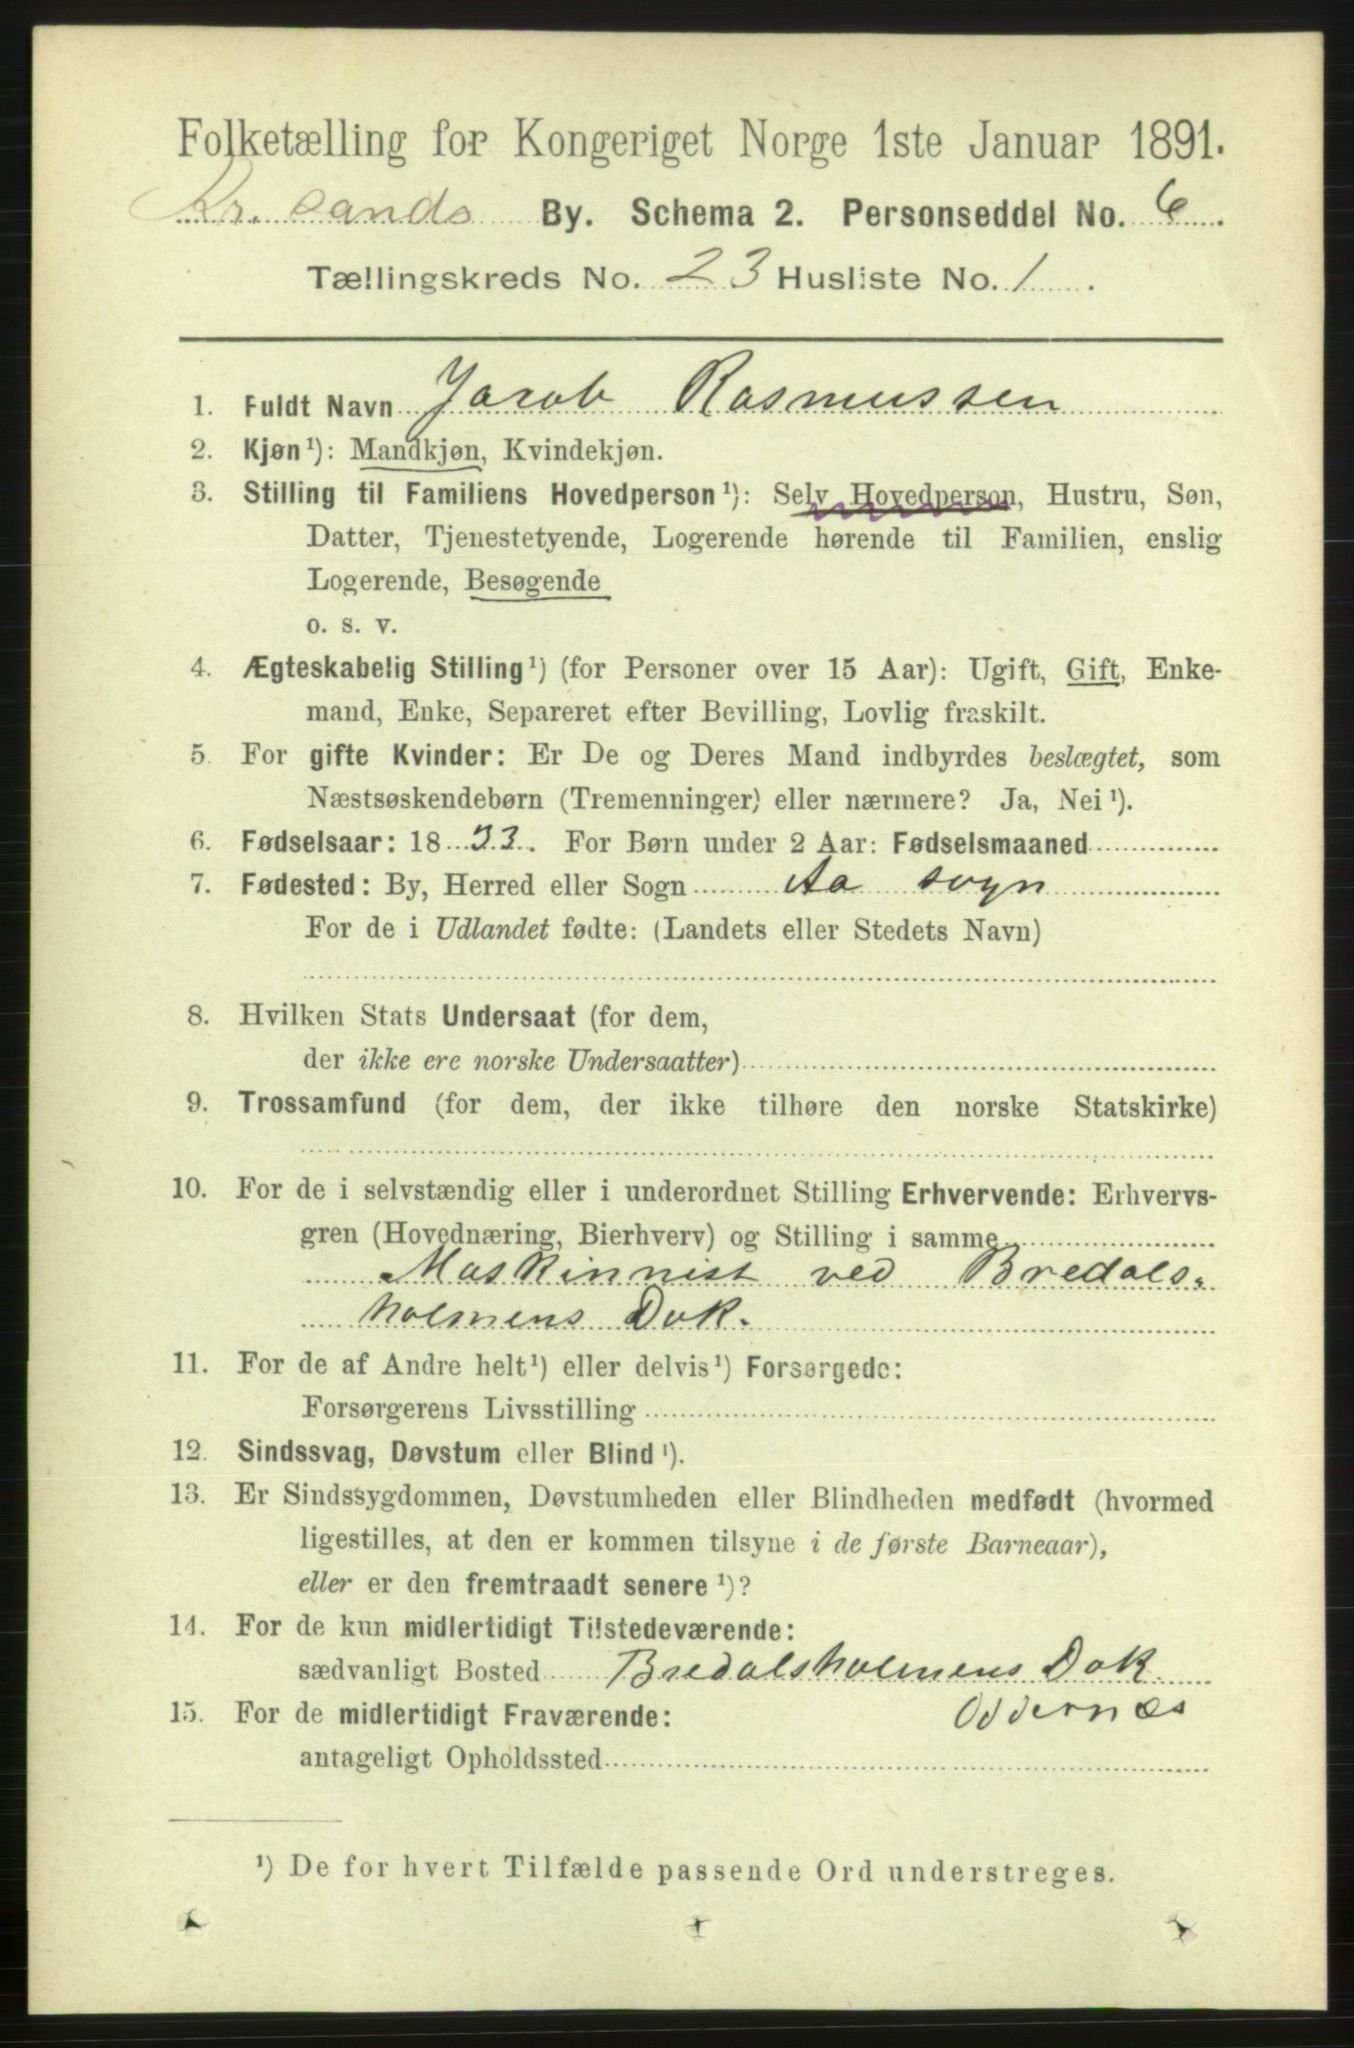 Folketælling for Kongeriget Norge 1ste Januar 1891.
Kr.sands By. Schema 2. Personseddel No. 6.
Tællingskreds No. 23 Husliste No. 1.
1. Fuldt Navn Jacob Rasmussen
2. Kjøn¹): Mandkjøn, Kvindekjøn.
3. Stilling til Familiens Hovedperson¹): Selv Hovedperson, Hustru, Søn,
Datter, Tjenestetyende, Logerende hørende til Familien, enslig
Logerende, Besøgende
o. s. v.
4. Ægteskabelig Stilling¹) (for Personer over 15 Aar): Ugift, Gift, Enke-
mand, Enke, Separeret efter Bevilling, Lovlig fraskilt.
5. For gifte Kvinder: Er De og Deres Mand indbyrdes beslægtet, som
Næstsøskendebørn (Tremenninger) eller nærmere? Ja, Nei¹).
6. Fødselsaar: 18 33. For Børn under 2 Aar: Fødselsmaaned
7. Fødested: By, Herred eller Sogn Aa sogn
For de i Udlandet fødte: (Landets eller Stedets Navn)
8. Hvilken Stats Undersaat (for dem,
der ikke ere norske Undersaatter)
9. Trossamfund (for dem, der ikke tilhøre den norske Statskirke)
10. For de i selvstændig eller i underordnet Stilling Erhvervende: Erhvervs-
gren (Hovednæring, Bierhverv) og Stilling i samme
Maskinnist ved Bredals-
holmens Dok.
11. For de af Andre helt¹) eller delvis¹) Forsørgede:
Forsørgerens Livsstilling
12. Sindssvag, Døvstum eller Blind¹).
13. Er Sindssygdommen, Døvstumheden eller Blindheden medfødt (hvormed
ligestilles, at den er kommen tilsyne i de første Barneaar),
eller er den fremtraadt senere¹)?
14. For de kun midlertidigt Tilstedeværende:
sædvanligt Bosted Bredalsholmens Dok.
15. For de midlertidigt Fraværende: Oddernæs
antageligt Opholdssted
¹) De for hvert Tilfælde passende Ord understreges.